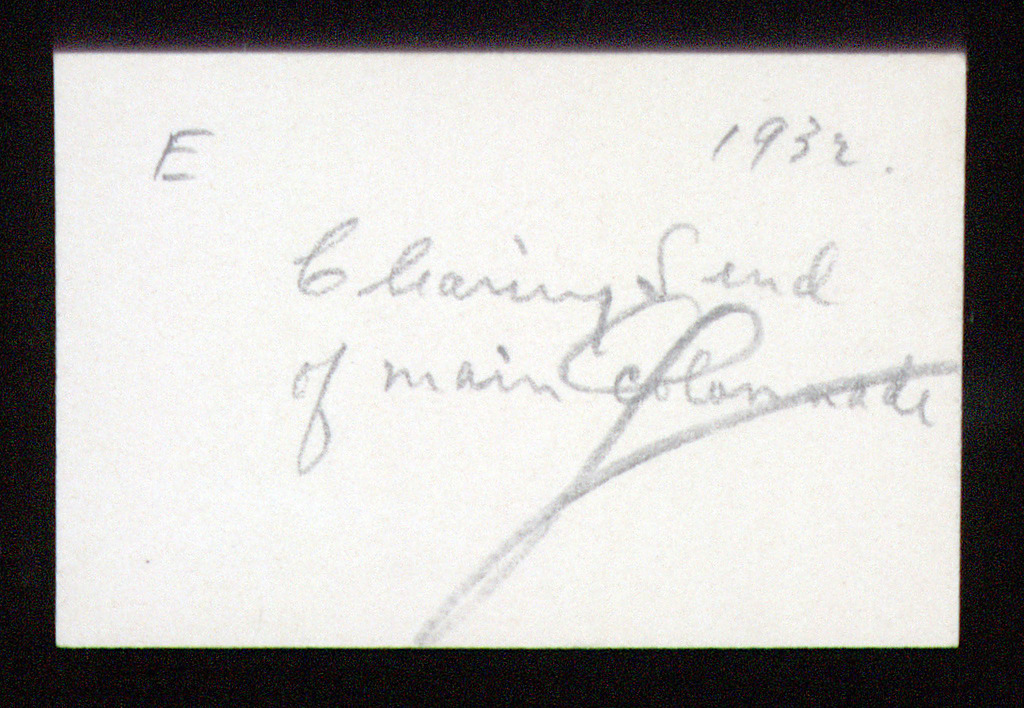 E 1932.
Clearing S end
of main Colonnade